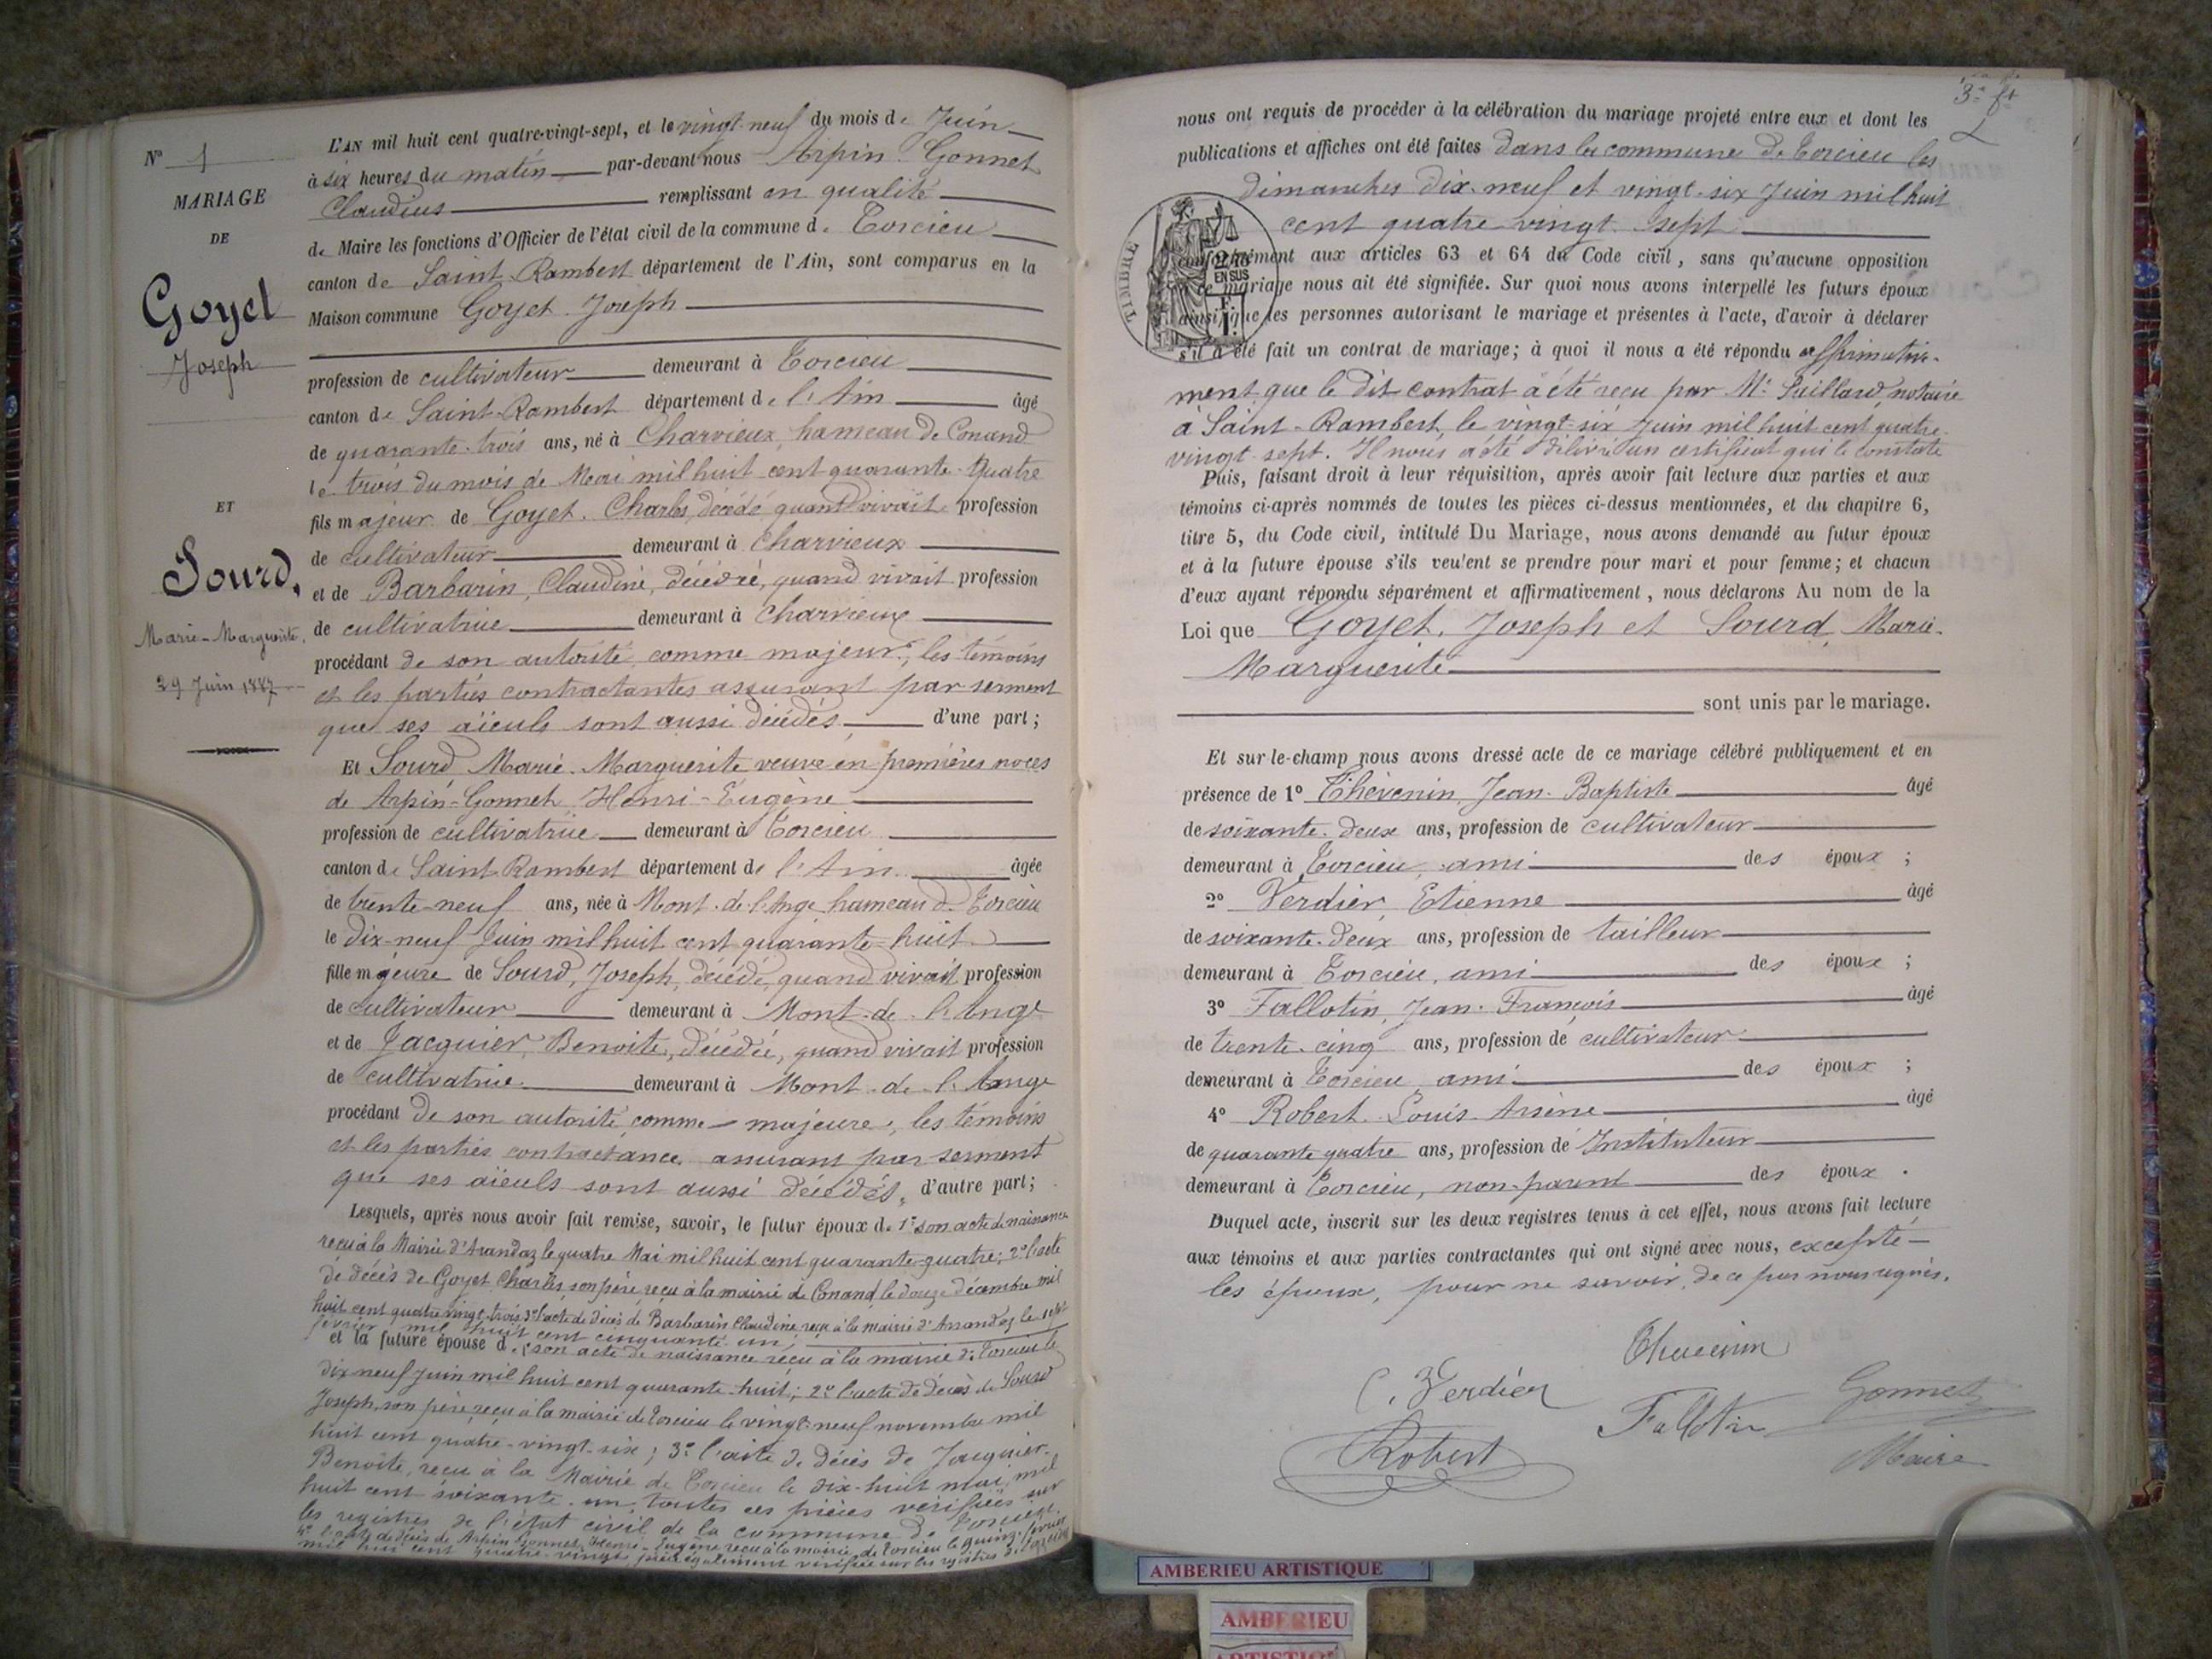 N° 1
MARIAGE
DE
Goyet
Joseph
ET
Sourd,
Marie-Marguerite.
29 Juin 1887
L'AN mil huit cent quatre-vingt-sept, et le vingt-neuf du mois de Juin
à six heures du matin par-devant nous Arpin-Gonnet
Claudius remplissant en qualité
de Maire les fonctions d'Officier de l'état civil de la commune de Torcieu
canton de Saint-Rambert département de l'Ain, sont comparus en la
Maison commune Goyet Joseph
profession de cultivateur demeurant à Torcieu
canton de Saint-Rambert département de l'Ain âgé
de quarante-trois ans, né à Charvieux, hameau de Conand
le trois du mois de Mai mil huit cent quarante-quatre
fils majeur de Goyet, Charles, décédé quand vivait profession
de cultivateur demeurant à Charvieux
et de Barbarin, Claudine, décédée, quand vivait profession
de cultivatrice demeurant à Charvieux
procédant de son autorité comme majeur, les témoins
et les parties contractantes assurant par serment
que ses aïeuls sont aussi décédés, d'une part;
Et Sourd, Marie-Marguerite veuve en premières noces
de Arpin-Gonnet, Henri-Eugène
profession de cultivatrice demeurant à Torcieu
canton de Saint-Rambert département de l'Ain âgée
de trente-neuf ans, née à Mont-de-l'Ange hameau de Torcieu
le dix-neuf Juin mil huit cent quarante-huit
fille majeure de Sourd, Joseph, décédé, quand vivait profession
de cultivateur demeurant à Mont-de-l'Ange
et de Jacquier, Benoite, décédée, quand vivait profession
de cultivatrice demeurant à Mont-de-l'Ange
procédant de son autorité comme majeure, les témoins
et les parties contractance assurant par serment
que ses aïeuls sont aussi décédés, d'autre part;
Lesquels, après nous avoir fait remise, savoir, le futur époux de 1° son acte de naissance
reçu à la Mairie d'Arandaz le quatre Mai mil huit cent quarante-quatre; 2° l'acte
de décès de Goyet Charles, son père, reçu à la mairie de Conand, le douze décembre mil
huit cent quatre-vingt-trois 3° l'acte de décès de Barbarin Claudine, reçu à la mairie d'Arrandaz le sept
février mil huit cent cinquante-un;
et la future épouse de 1° son acte de naissance reçu à la mairie de Torcieu le
dix-neuf Juin mil huit cent quarante-huit; 2° l'acte de décès de Sourd
Joseph, son père reçu à la mairie de Torcieu le vingt-neuf novembre mil
huit cent quatre-vingt-six; 3° l'acte de décès de Jacquier
Benoite, reçu à la Mairie de Torcieu le dix-huit mai mil
huit cent soixante-un, toutes ces pièces vérifiées sur
les registres de l'état civil de la commune de Torcieu.
4° l'acte de décès de Arpin Gonnet, Henri-Eugène reçu à la mairie de Torcieu le quinze février
mil huit cent quatre-vingt pièce également vérifiée sur les registres de
3e ft
nous ont requis de procéder à la célébration du mariage projeté entre eux et dont les
publications et affiches ont été faites dans la commune de Torcieu les
dimanches dix-neuf et vingt-six Juin mil huit
cent quatre-vingt-sept
TIMBRE
2/10
EN SUS
conformément aux articles 63 et 64 du Code civil, sans qu'aucune opposition
ce mariage nous ait été signifiée. Sur quoi nous avons interpellé les futurs époux
ainsi que les personnes autorisant le mariage et présentes à l'acte, d'avoir à déclarer
s'il a été fait un contrat de mariage; à quoi il nous a été répondu affirmative-
ment que le dit contrat a été reçu par Me Saillard, notaire
à Saint-Rambert, le vingt-six Juin mil huit cent quatre-
vingt-sept. Il nous a été délivré un certificat qui le constate
Puis, faisant droit à leur réquisition, après avoir fait lecture aux parties et aux
témoins ci-après nommés de toutes les pièces ci-dessus mentionnées, et du chapitre 6,
titre 5, du Code civil, intitulé Du Mariage, nous avons demandé au futur époux
et à la future épouse s'ils veulent se prendre pour mari et pour femme; et chacun
d'eux ayant répondu séparément et affirmativement, nous déclarons Au nom de la
Loi que Goyet, Joseph et Sourd, Marie-
Marguerite
sont unis par le mariage.
Et sur-le-champ nous avons dressé acte de ce mariage célébré publiquement et en
présence de 1° Thévenin, Jean-Baptiste âgé
de soixante-deux ans, profession de cultivateur
demeurant à Torcieu, ami des époux;
2° Verdier, Etienne âgé
de soixante-deux ans, profession de tailleur
demeurant à Torcieu, ami des époux;
3° Fallotin, Jean-François âgé
de trente-cinq ans, profession de cultivateur
demeurant à Torcieu, ami des époux;
4° Robert Louis Arsène âgé
de quarante quatre ans, profession de Instituteur
demeurant à Torcieu, non-parent des époux.
Duquel acte, inscrit sur les deux registres tenus à cet effet, nous avons fait lecture
aux témoins et aux parties contractantes qui ont signé avec nous, excepté
les époux, pour ne savoir, de ce par nous requis.
Thevenin
E. Verdier
Fallotin
Gonnet
Robert
Maire
AMBERIEU ARTISTIQUE
AMBERIEU
ARTISTIQUE